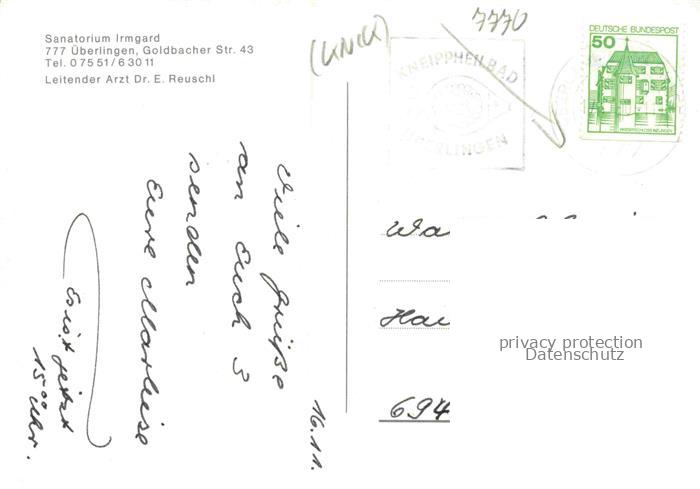 Sanatorium Irmgard
777 Überlingen, Goldbacher Str. 43
Tel. 0 75 51 / 6 30 11
Leitender Arzt Dr. E. Reuschl
(KNICK)
7770
KNEIPPHEILBAD
ÜBERLINGEN
DEUTSCHE BUNDESPOST
50
WASSERSCHLOSS INZLINGEN
16.11.
Viele Grüße
an Euch 3
senden
Eure Marliese
Es ist jetzt
15⁰⁰ Uhr.
Wa
Hau
694
privacy protection
Datenschutz